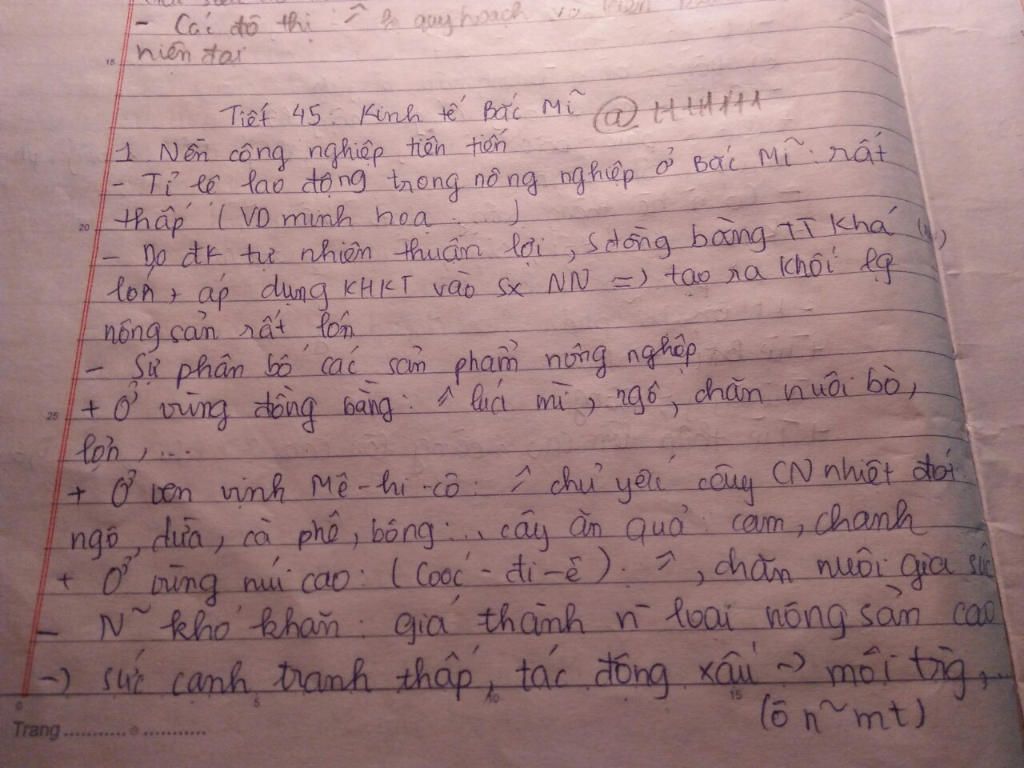 - Các đô thị : ↗ & quy hoạch và
hiện đại
18
Tiết 45. Kinh tế Bắc Mĩ @
1 Nền công nghiệp tiên tiến
- Tỉ lệ lao động trong nông nghiệp ở Bắc Mĩ rất
20 thấp (VD minh hoạ ... )
- Do đk tự nhiên thuận lợi, S đồng bằng TT khá
lớn, áp dụng KHKT vào sx NN => tạo ra khối lg
nông sản rất lớn
- Sự phân bố các sản phẩm nông nghiệp
25 + Ở vùng đồng bằng: ↗ lúa mì, ngô, chăn nuôi bò,
lợn, ...
+ Ở ven vịnh Mê-hi-cô: ↗ chủ yếu cây CN nhiệt đới
ngô, dừa, cà phê, bông... cây ăn quả: cam, chanh
+ Ở vùng núi cao: (Cooc-đi-e). ↗, chăn nuôi gia súc
- N~ khó khăn: giá thành n̄ loại nông sản cao
-> sức cạnh tranh thấp, tác động xấu -> môi trg,...
(ô n~ mt)
0 5 10 15
Trang